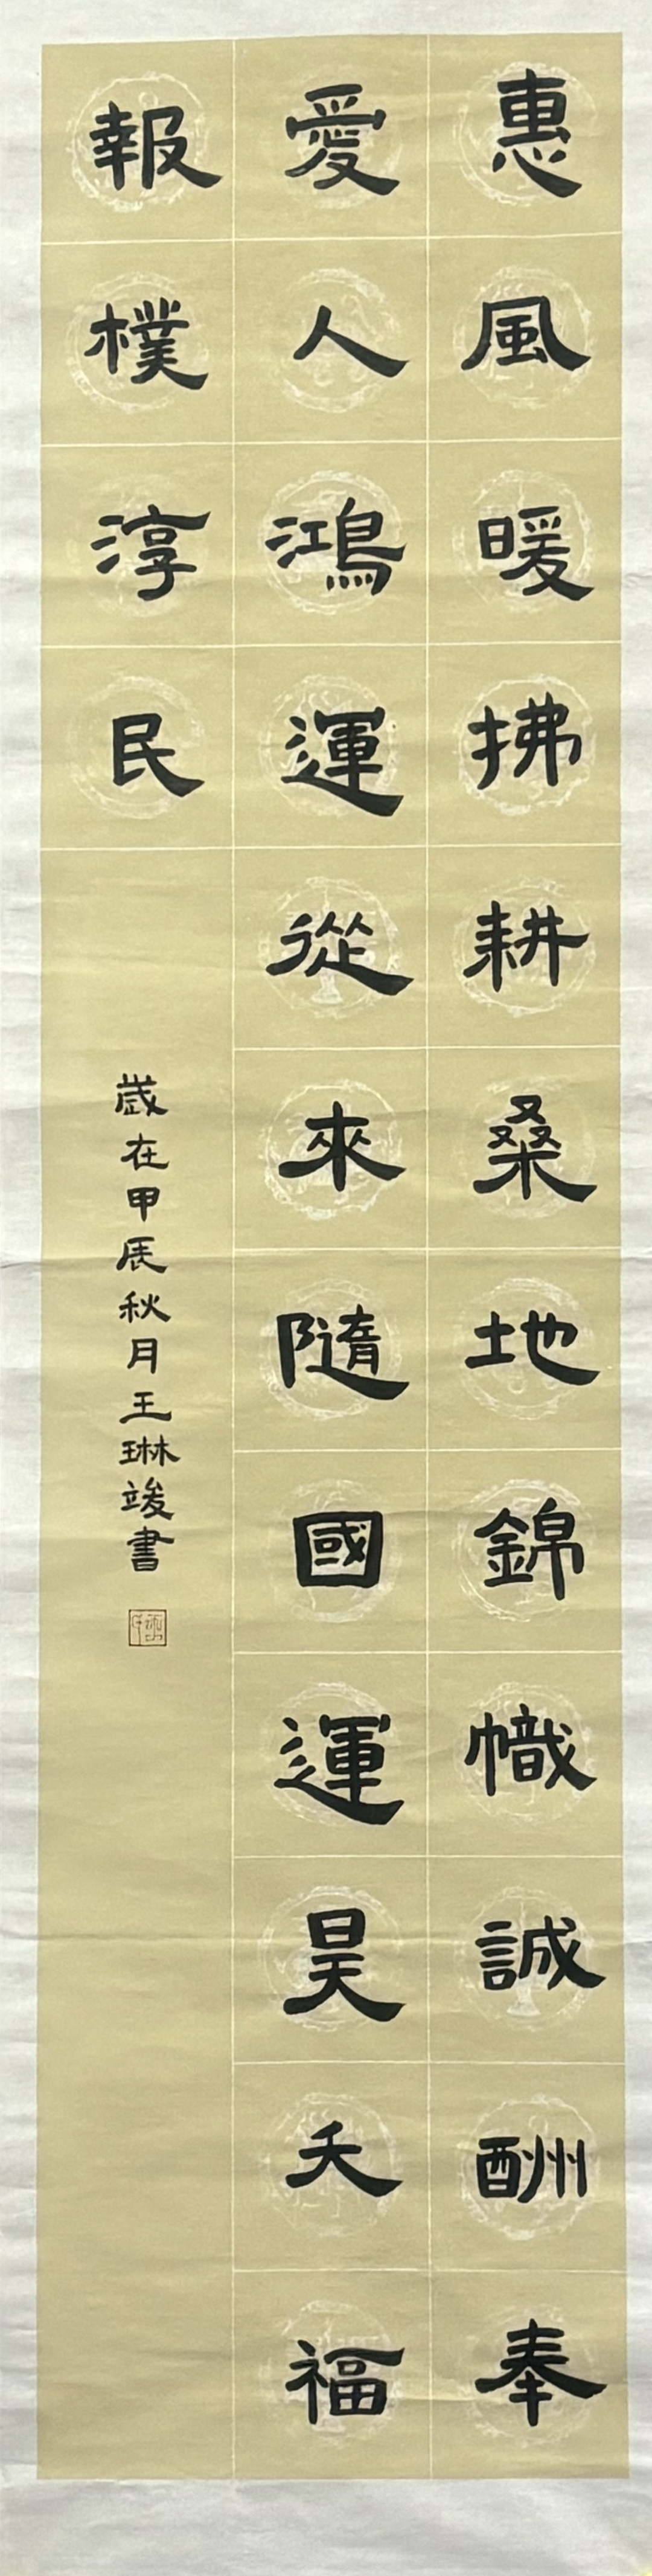 惠風暖拂耕桑地錦幟誠酬奉
愛人鴻運從來隨國運昊天福
報樸淳民
歲在甲辰秋月王琳竣書